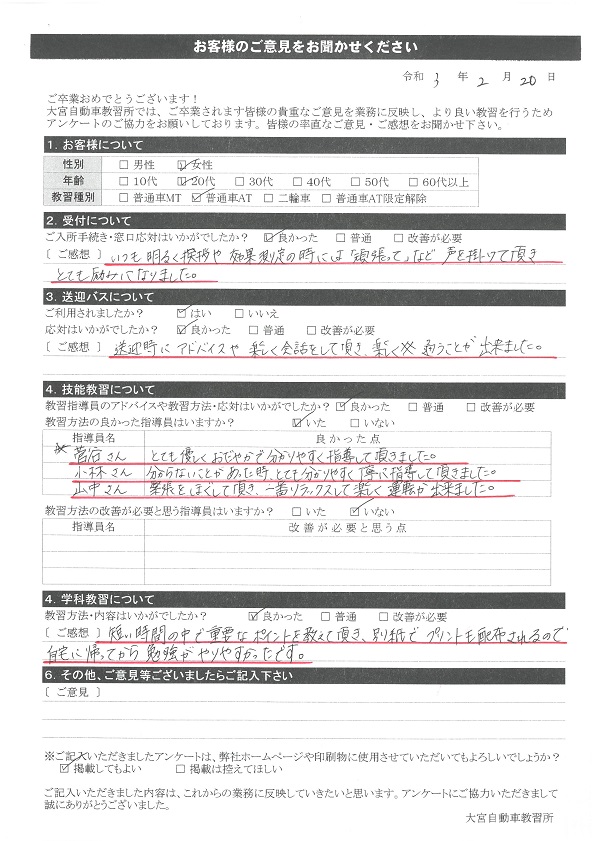 お客様のご意見をお聞かせください
令和 3 年 2 月 20 日
ご卒業おめでとうございます！
大宮自動車教習所では、ご卒業されます皆様の貴重なご意見を業務に反映し、より良い教習を行うため
アンケートのご協力をお願いしております。皆様の率直なご意見・ご感想をお聞かせ下さい。
1. お客様について
性別 □ 男性 ☑ 女性
年齢 □ 10代 ☑ 20代 □ 30代 □ 40代 □ 50代 □ 60代以上
教習種別 □ 普通車MT ☑ 普通車AT □ 二輪車 □ 普通車AT限定解除
2. 受付について
ご入所手続き・窓口応対はいかがでしたか？ ☑ 良かった □ 普通 □ 改善が必要
〔 ご感想 〕 いつも明るく挨拶や 効果測定の時には「頑張って」など 声を掛けて頂き
とても励みになりました。
3. 送迎バスについて
ご利用されましたか？ ☑ はい □ いいえ
応対はいかがでしたか？ ☑ 良かった □ 普通 □ 改善が必要
〔 ご感想 〕 送迎時に アドバイスや 楽しく会話をして頂き、楽しく 通うことが 出来ました。
4. 技能教習について
教習指導員のアドバイスや教習方法・応対はいかがでしたか？ ☑ 良かった □ 普通 □ 改善が必要
教習方法の良かった指導員はいますか？ ☑ いた □ いない
指導員名 良かった点
菅谷さん とても優しくおだやかで分かりやすく指導して頂きました。
小林さん 分からないことがあった時、とても分かりやすく丁寧に指導して頂きました。
山中さん 緊張をほぐして頂き、一番リラックスして楽しく 運転が出来ました。
教習方法の改善が必要と思う指導員はいますか？ □ いた ☑ いない
指導員名 改善が必要と思う点
4. 学科教習について
教習方法・内容はいかがでしたか？ ☑ 良かった □ 普通 □ 改善が必要
〔 ご感想 〕 短い時間の中で重要なポイントを教えて頂き、別紙で プリントも配布されるので
自宅に帰ってから 勉強が やりやすかったです。
6. その他、ご意見等ございましたらご記入下さい
〔 ご意見 〕
※ご記入いただきましたアンケートは、弊社ホームページや印刷物に使用させていただいてもよろしいでしょうか？
☑ 掲載してもよい □ 掲載は控えてほしい
ご記入いただきました内容は、これからの業務に反映していきたいと思います。アンケートにご協力いただきまして
誠にありがとうございました。
大宮自動車教習所